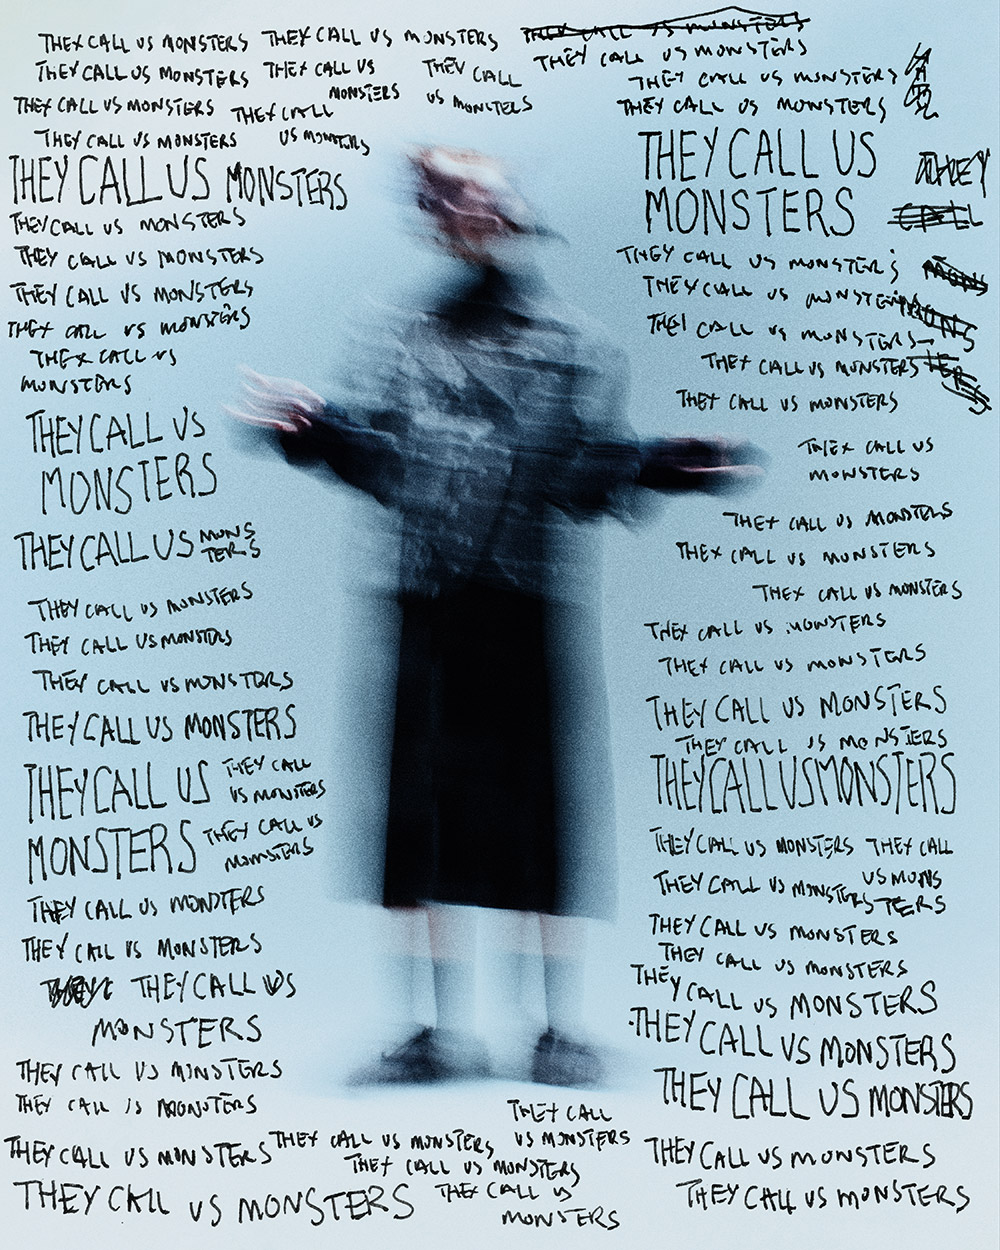 THEY CALL US MONSTERS THEY CALL US MONSTERS THEY CALL US MONSTERS
THEY CALL US MONSTERS
THEY CALL US MONSTERS
THEY CALL US
MONSTERS
THEY CALL
US MONSTERS
THEY CALL US MONSTERS
THEY CALL
US MONSTERS
THEY CALL US MONSTERS
THEY CALL US MONSTERS
THEY CALL US MONSTERS
THEY CALL US MONSTERS
THEY CALL US MONSTERS
THEY CALL US MONSTERS
THEY CALL US
MONSTERS
THEY CALL US
MONSTERS
THEY CALL US MONS
TERS
THEY CALL US MONSTERS
THEY CALL US MONSTERS
THEY CALL US MONSTERS
THEY CALL US MONSTERS
THEY CALL US
MONSTERS
THEY CALL
US MONSTERS
THEY CALL US
MONSTERS
THEY CALL US MONSTERS
THEY CALL US MONSTERS
THEY CALL US
MONSTERS
THEY CALL US MONSTERS
THEY CALL US MONSTERS
THEY CALL US MONSTERS
THEY CALL US MONSTERS
THEY CALL US MONSTERS
THEY CALL US
MONSTERS
THEY CALL US MONSTERS
THEY CALL US MONSTERS
THEY CALL US MONSTERS
THEY CALL US MONSTERS
THEY
CALL
MONS
MONS
TERS
THEY CALL US MONSTERS
THEY CALL US
MONSTERS
THEY CALL US MONSTERS
THEY CALL US MONSTERS
THEY CALL US MONSTERS
THEY CALL US MONSTERS
THEY CALL US MONSTERS
THEY CALL US MONSTERS
THEY CALL US MONSTERS
THEY CALL US MONSTERS
THEY CALL US MONSTERS
THEY CALL US MONSTERS THEY CALL
US MONS
TERS
THEY CALL US MONSTERS
THEY CALL US MONSTERS
THEY CALL US MONSTERS
THEY CALL US MONSTERS
THEY CALL US MONSTERS
THEY CALL US MONSTERS
THEY CALL US MONSTERS
THEY CALL US MONSTERS
THEY CALL
US MONSTERS
THEY CALL US MONSTERS
THEY CALL US MONSTERS
THEY CALL US
MONSTERS
THEY CALL US MONSTERS
THEY CALL US MONSTERS